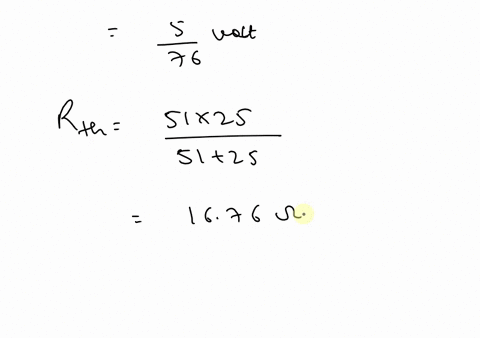 = 5/76 volt
Rth = 51×25/51+25
= 16.76 Ω.